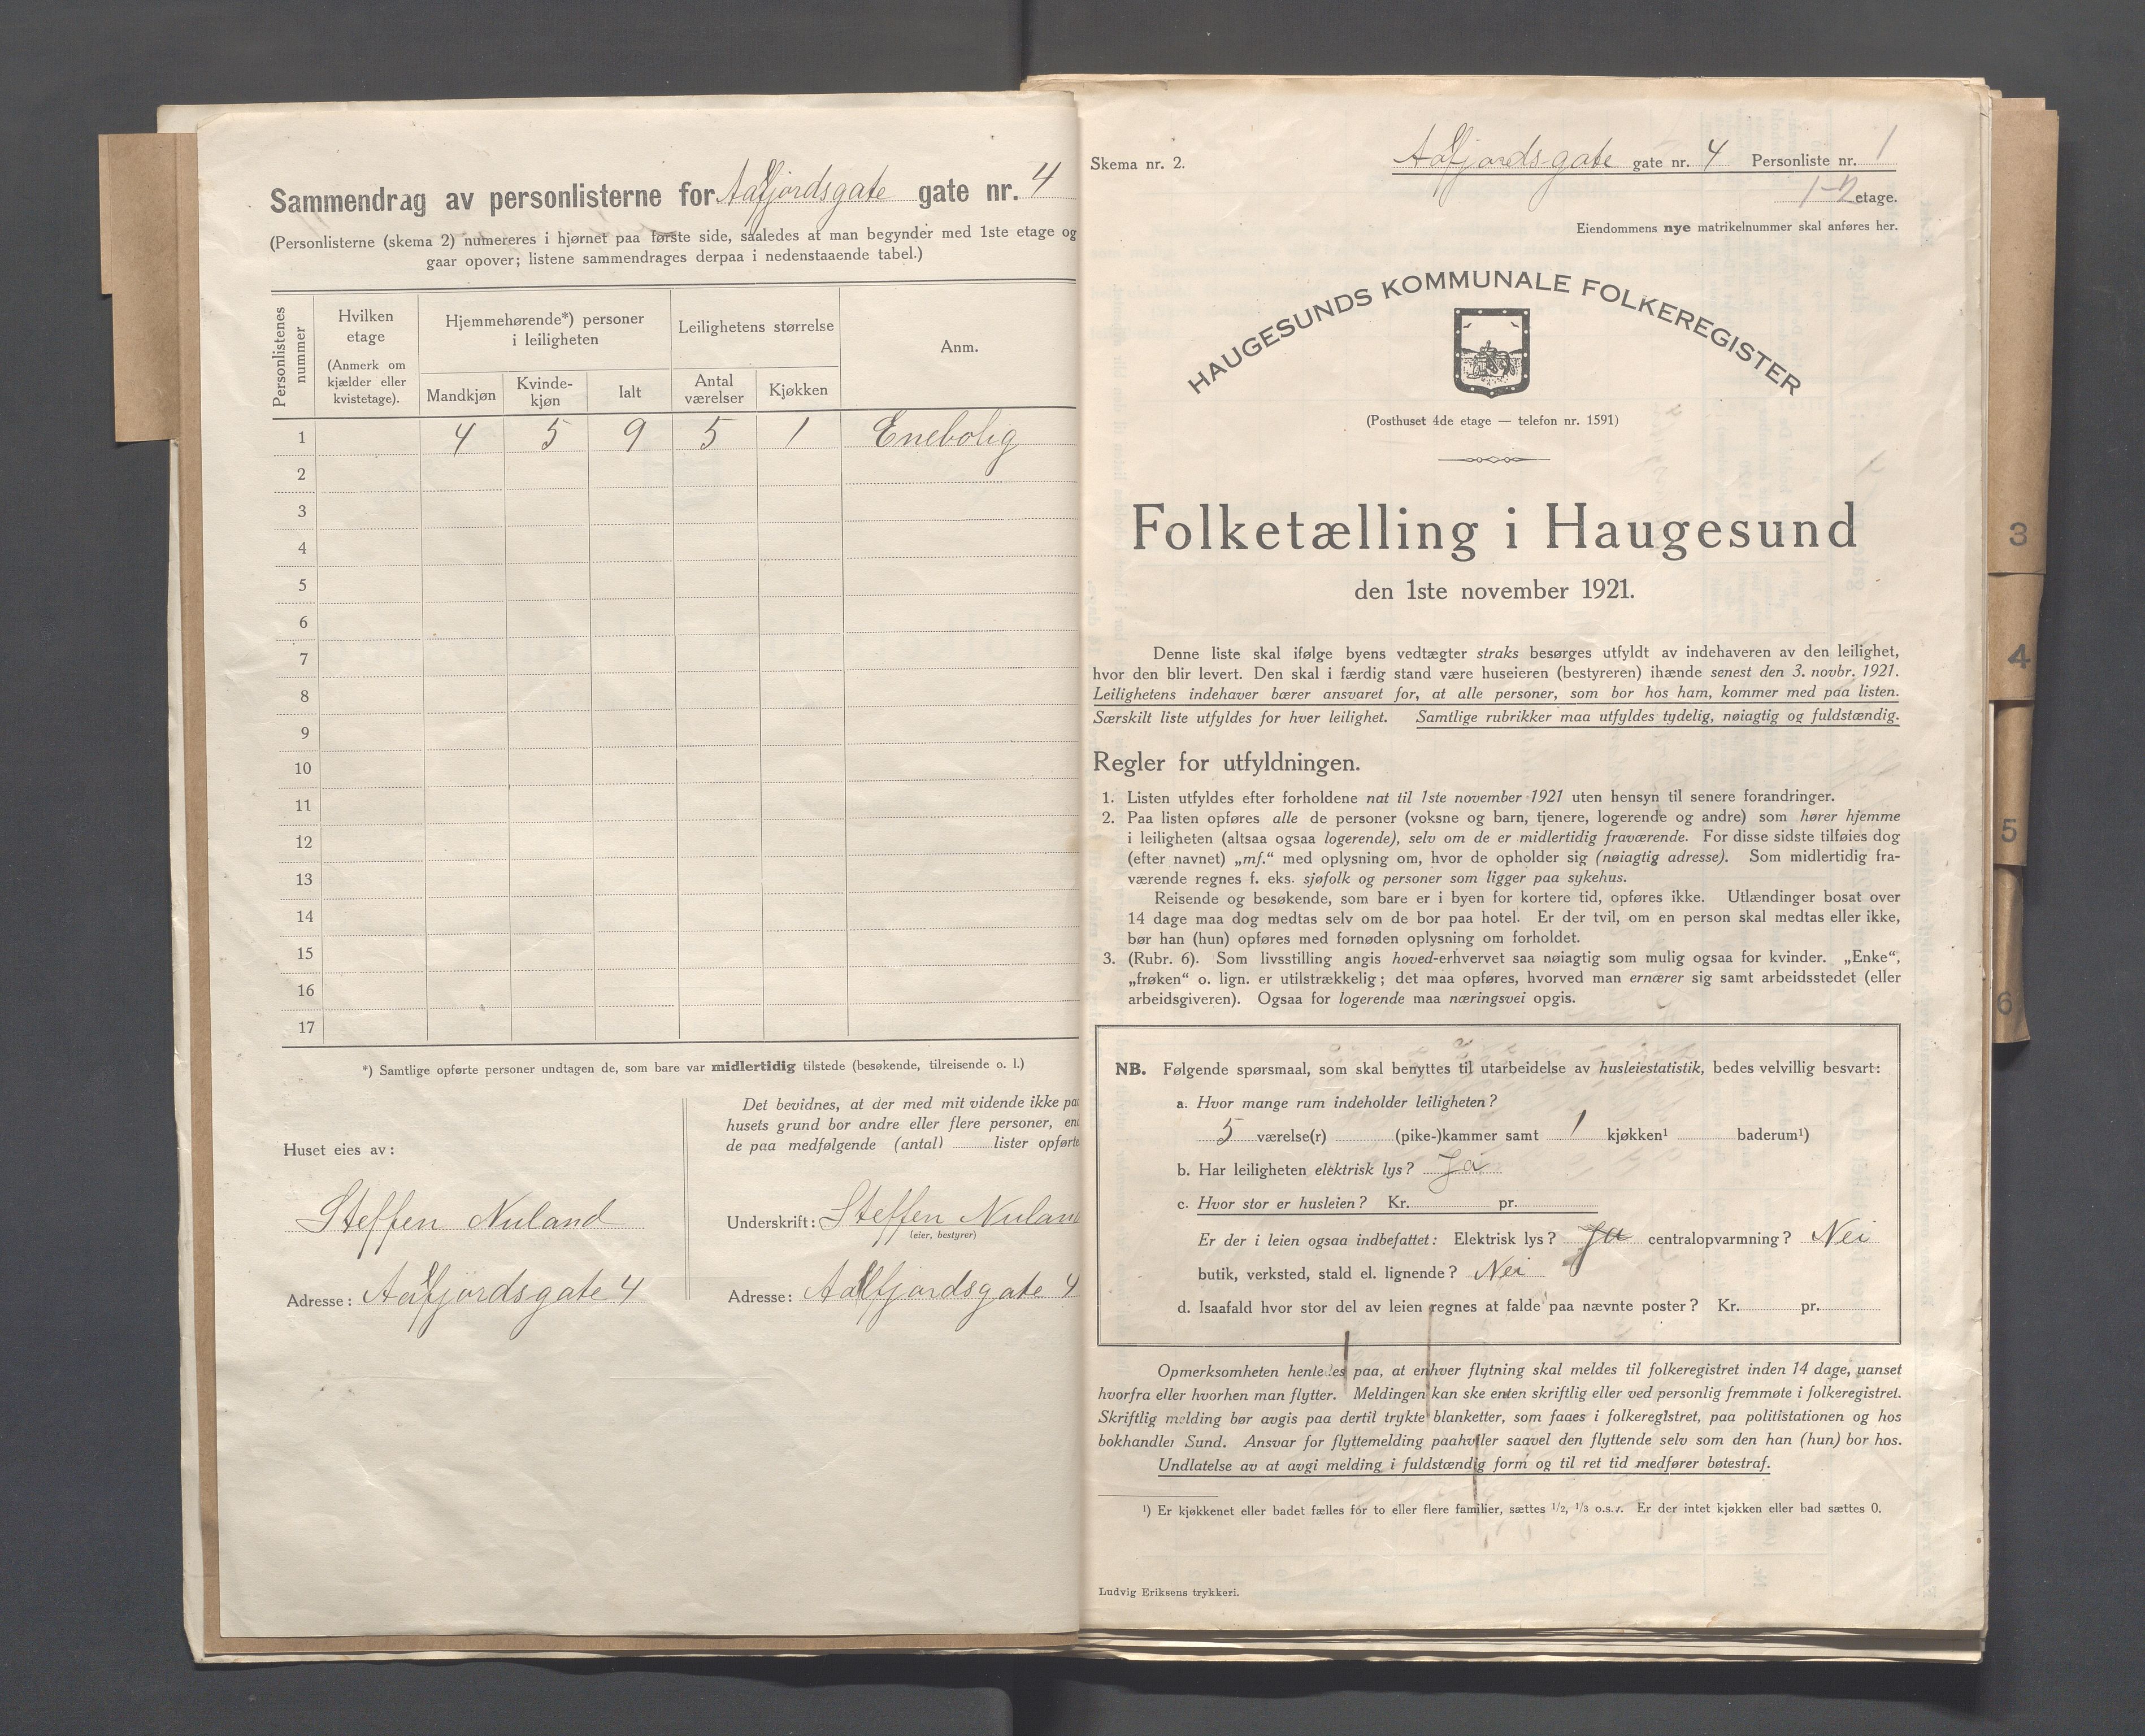 Sammendrag av personlisterne for Aalfjordsgate gate nr. 4
(Personlisterne (skema 2) numereres i hjørnet paa første side, saaledes at man begynder med 1ste etage og
gaar opover; listene sammendrages derpaa i nedenstaaende tabel.)
Personlistenes nummer
Hvilken etage
(Anmerk om kjælder eller kvistetage).
Hjemmehørende*) personer i leiligheten
Mandkjøn
Kvinde-kjøn
Ialt
Leilighetens størrelse
Antal værelser
Kjøkken
Anm.
1 4 5 9 5 1 Enebolig
2
3
4
5
6
7
8
9
10
11
12
13
14
15
16
17
*) Samtlige opførte personer undtagen de, som bare var midlertidig tilstede (besøkende, tilreisende o. l.)
Huset eies av:
Steffen Nuland
Adresse: Aalfjordsgate 4
Det bevidnes, at der med mit vidende ikke paa
husets grund bor andre eller flere personer, en
de paa medfølgende (antal) lister opførte
Underskrift: Steffen Nuland
(eier, bestyrer)
Adresse: Aalfjordsgate 4
Skema nr. 2.
Aalfjords-gate gate nr. 4 Personliste nr. 1
1-2 etage.
Eiendommens nye matrikelnummer skal anføres her.
HAUGESUNDS KOMMUNALE FOLKEREGISTER
(Posthuset 4de etage — telefon nr. 1591)
Folketælling i Haugesund
den 1ste november 1921.
Denne liste skal ifølge byens vedtægter straks besørges utfyldt av indehaveren av den leilighet,
hvor den blir levert. Den skal i færdig stand være huseieren (bestyreren) ihænde senest den 3. novbr. 1921.
Leilighetens indehaver bærer ansvaret for, at alle personer, som bor hos ham, kommer med paa listen.
Særskilt liste utfyldes for hver leilighet. Samtlige rubrikker maa utfyldes tydelig, nøiagtig og fuldstændig.
Regler for utfyldningen.
1. Listen utfyldes efter forholdene nat til 1ste november 1921 uten hensyn til senere forandringer.
2. Paa listen opføres alle de personer (voksne og barn, tjenere, logerende og andre) som hører hjemme
i leiligheten (altsaa ogsaa logerende), selv om de er midlertidig fraværende. For disse sidste tilføies dog
(efter navnet) „mf.“ med oplysning om, hvor de opholder sig (nøiagtig adresse). Som midlertidig fra-
værende regnes f. eks. sjøfolk og personer som ligger paa sykehus.
Reisende og besøkende, som bare er i byen for kortere tid, opføres ikke. Utlændinger bosat over
14 dage maa dog medtas selv om de bor paa hotel. Er der tvil, om en person skal medtas eller ikke,
bør han (hun) opføres med fornøden oplysning om forholdet.
3. (Rubr. 6). Som livsstilling angis hoved-erhvervet saa nøiagtig som mulig ogsaa for kvinder. „Enke“,
„frøken“ o. lign. er utilstrækkelig; det maa opføres, hvorved man ernærer sig samt arbeidsstedet (eller
arbeidsgiveren). Ogsaa for logerende maa næringsvei opgis.
NB. Følgende spørsmaal, som skal benyttes til utarbeidelse av husleiestatistik, bedes velvillig besvart:
a. Hvor mange rum indeholder leiligheten?
5 værelse(r) (pike-)kammer samt 1 kjøkken¹ baderum¹)
b. Har leiligheten elektrisk lys? Ja
c. Hvor stor er husleien? Kr. pr.
Er der i leien ogsaa indbefattet: Elektrisk lys? Ja centralopvarmning? Nei
butik, verksted, stald el. lignende? Nei
d. Isaafald hvor stor del av leien regnes at falde paa nævnte poster? Kr. pr.
Opmerksomheten henledes paa, at enhver flytning skal meldes til folkeregistret inden 14 dage, uanset
hvorfra eller hvorhen man flytter. Meldingen kan ske enten skriftlig eller ved personlig fremmøte i folkeregistret.
Skriftlig melding bør avgis paa dertil trykte blanketter, som faaes i folkeregistret, paa politistationen og hos
bokhandler Sund. Ansvar for flyttemelding paahviler saavel den flyttende selv som den han (hun) bor hos.
Undlatelse av at avgi melding i fuldstændig form og til ret tid medfører bøtestraf.
¹) Er kjøkkenet eller badet fælles for to eller flere familier, sættes 1/2, 1/3 o.s.v. Er der intet kjøkken eller bad sættes 0.
Ludvig Eriksens trykkeri.
3
4
5
6